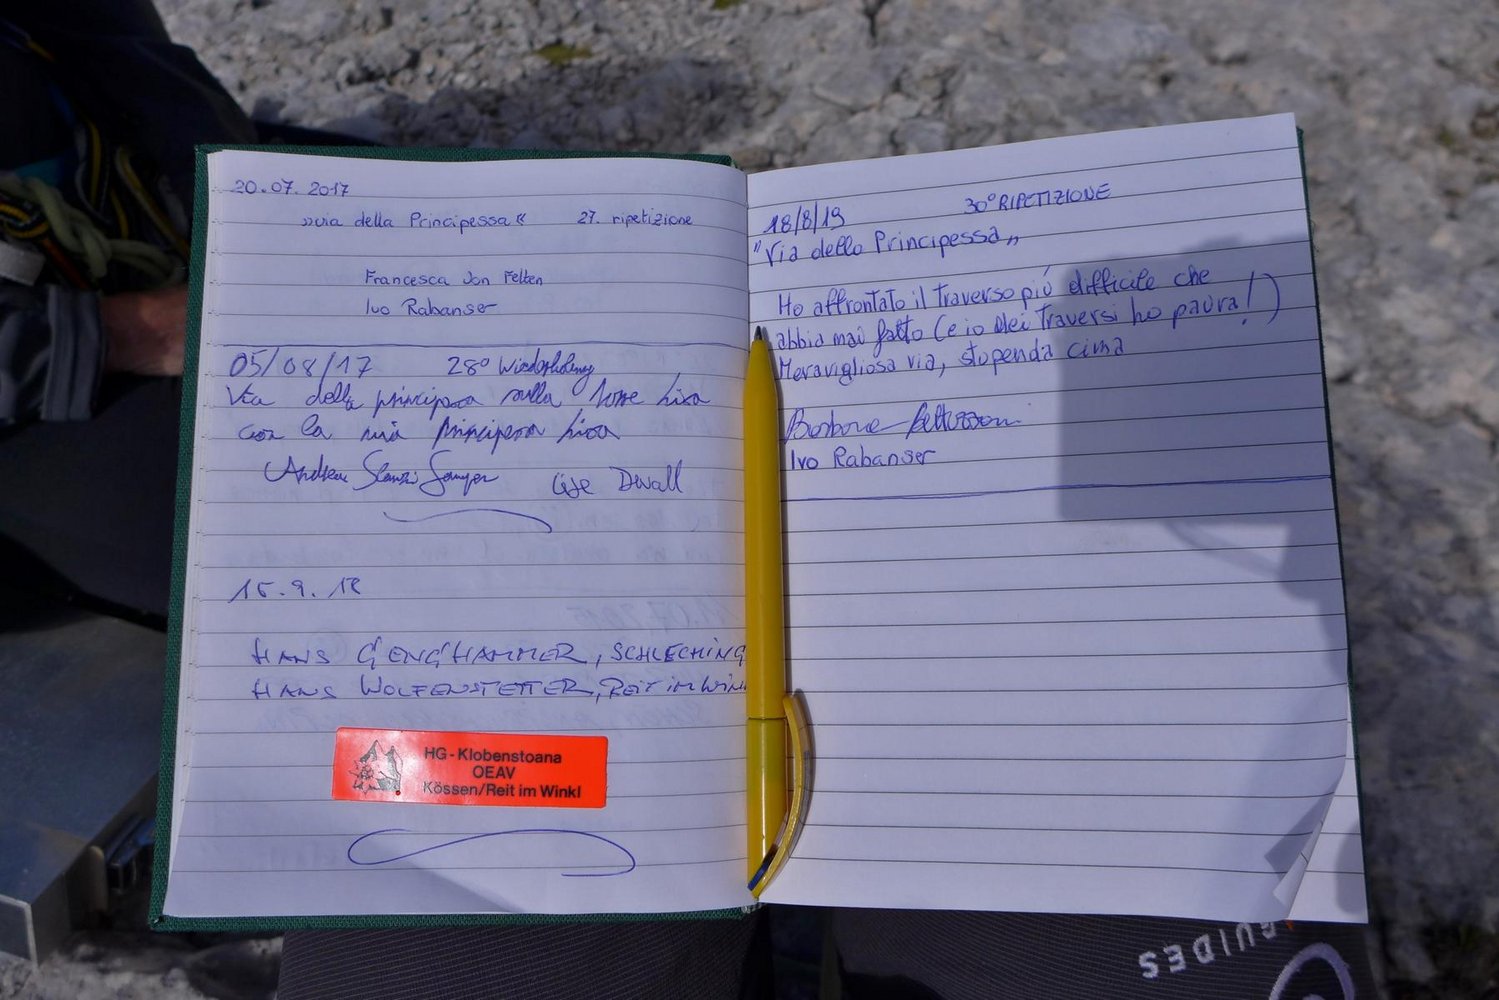 20.07.2017
»via della Principessa« 27. ripetizione
Francesca von Felten
Ivo Rabanser
05/08/17 28° Wiederholung
Via della principessa sulla Torre Lisa
con la mia principessa Lisa
Andrea
15.9.18
HANS GENGHAMMER, SCHLECHING
HANS WOLFENSTETTER, REIT IM WINK
HG-Klobenstoana
OEAV
Kössen/Reit im Winkl
18/8/19 30° RIPETIZIONE
"Via della Principessa„
Ho affrontato il traverso più difficile che
abbia mai fatto (e io dei traversi ho paura!)
Meravigliosa via, stupenda cima
Ivo Rabanser
GUIDES